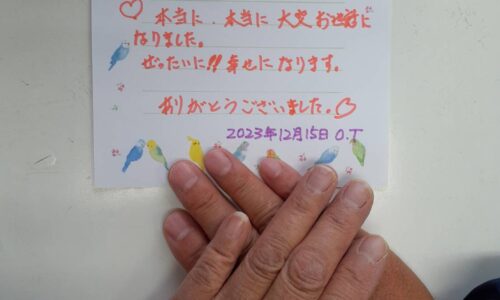 ♡ 本当に、本当に 大変 お世話に
なりました。
ぜったいに!! 幸せになります。
ありがとうございました。♡
2023年12月15日 O.T